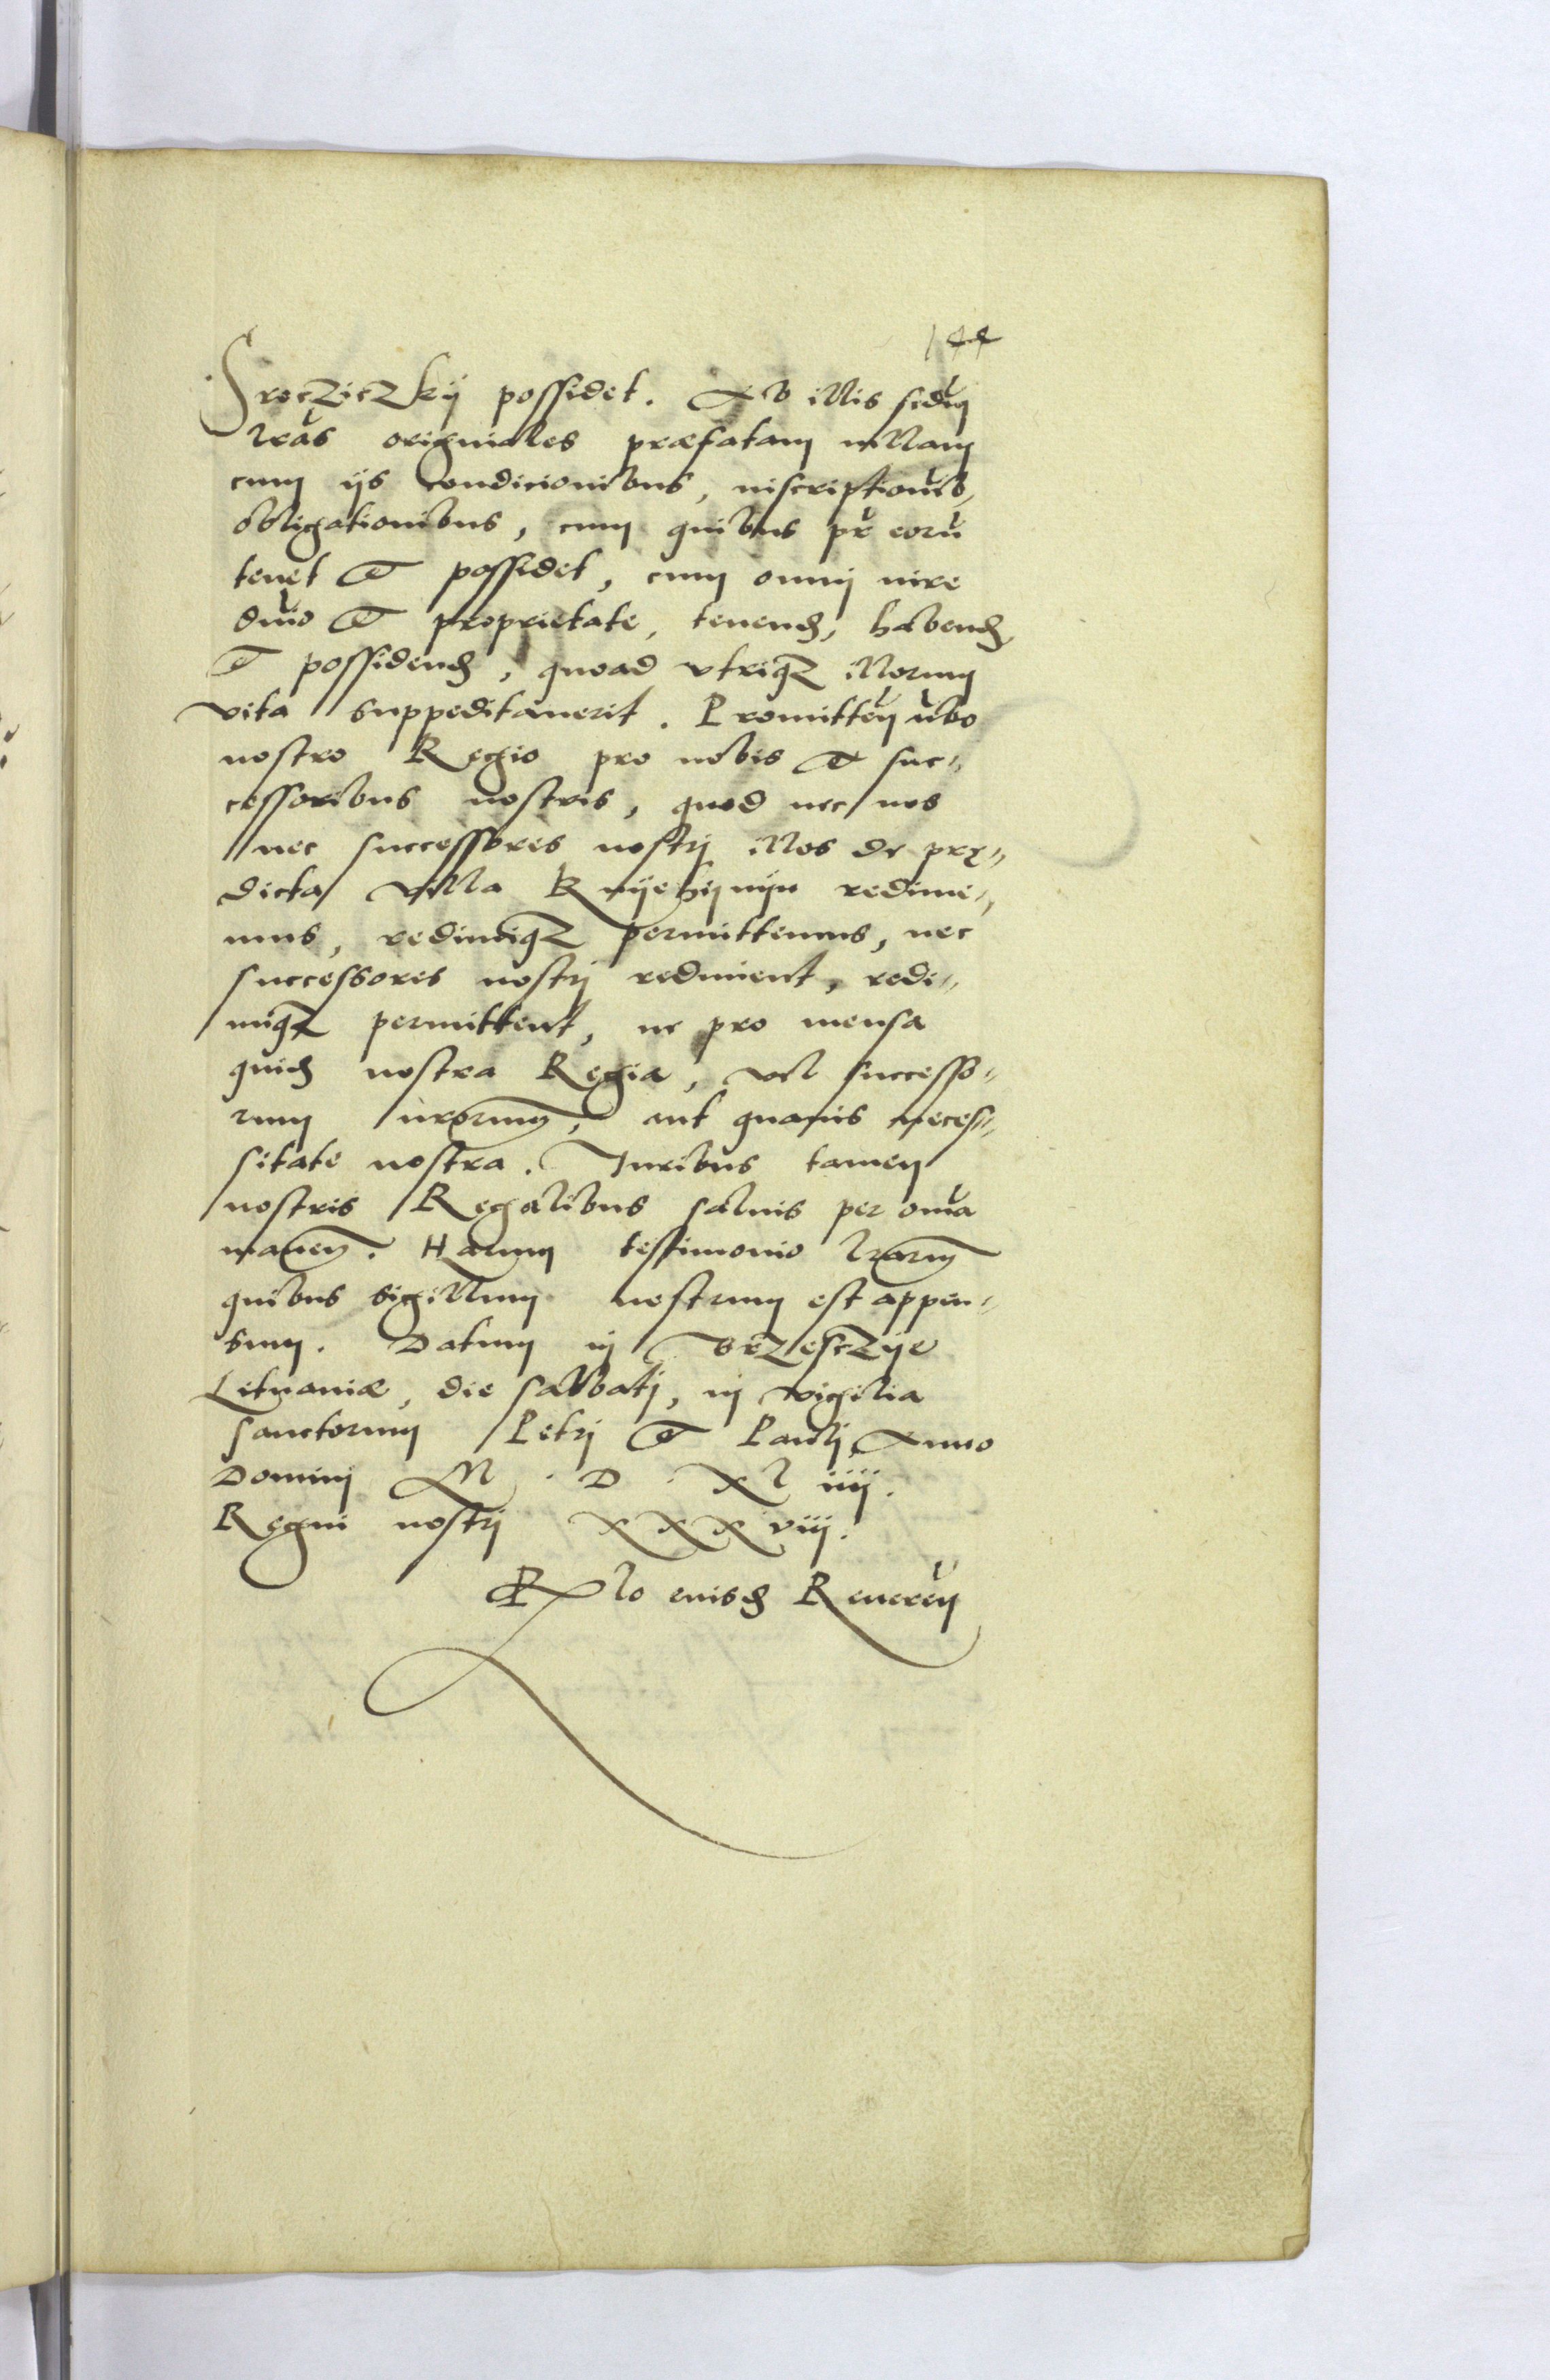 144
Sroczickij possidet. Ab illis scdm
lras originales præfatam villam
cum ijs condicionibus, inscriptionib,
obligationibus, cum quibus pr eorū
tenet et possidet, cum omnj iure
dnio et proprietate, tenend, habend,
et possidend, quoad vtriqz illorum
vita suppeditauerit. Promitten vbo
nostro Regio pro nobis et suc-
cessoribus nostris, quod nec nos
nec successores nostrj illos de præ-
dicta villa Knijehijnijn redime-
mus, redimiqz permittemus, nec
successores nostrj rediment, redi-
miqz permittent, ne pro mensa
quid nostra Regia, vel successo-
rum nrorum, aut quauis neces-
sitate nostra. Juribus tamen
nostris Regalibus saluis per omia
manen. Harum testimonio lrarum
quibus sigillum nostrum est appen-
sum. Datum in Brzesczije
Lituaniæ, die sabbatj, in vigilia
sanctorum Petrj et Paulj, Anno
Dominj M. D. XL iiij.
Regni nostrj XXX viij.
Rlo eiusd Reueren